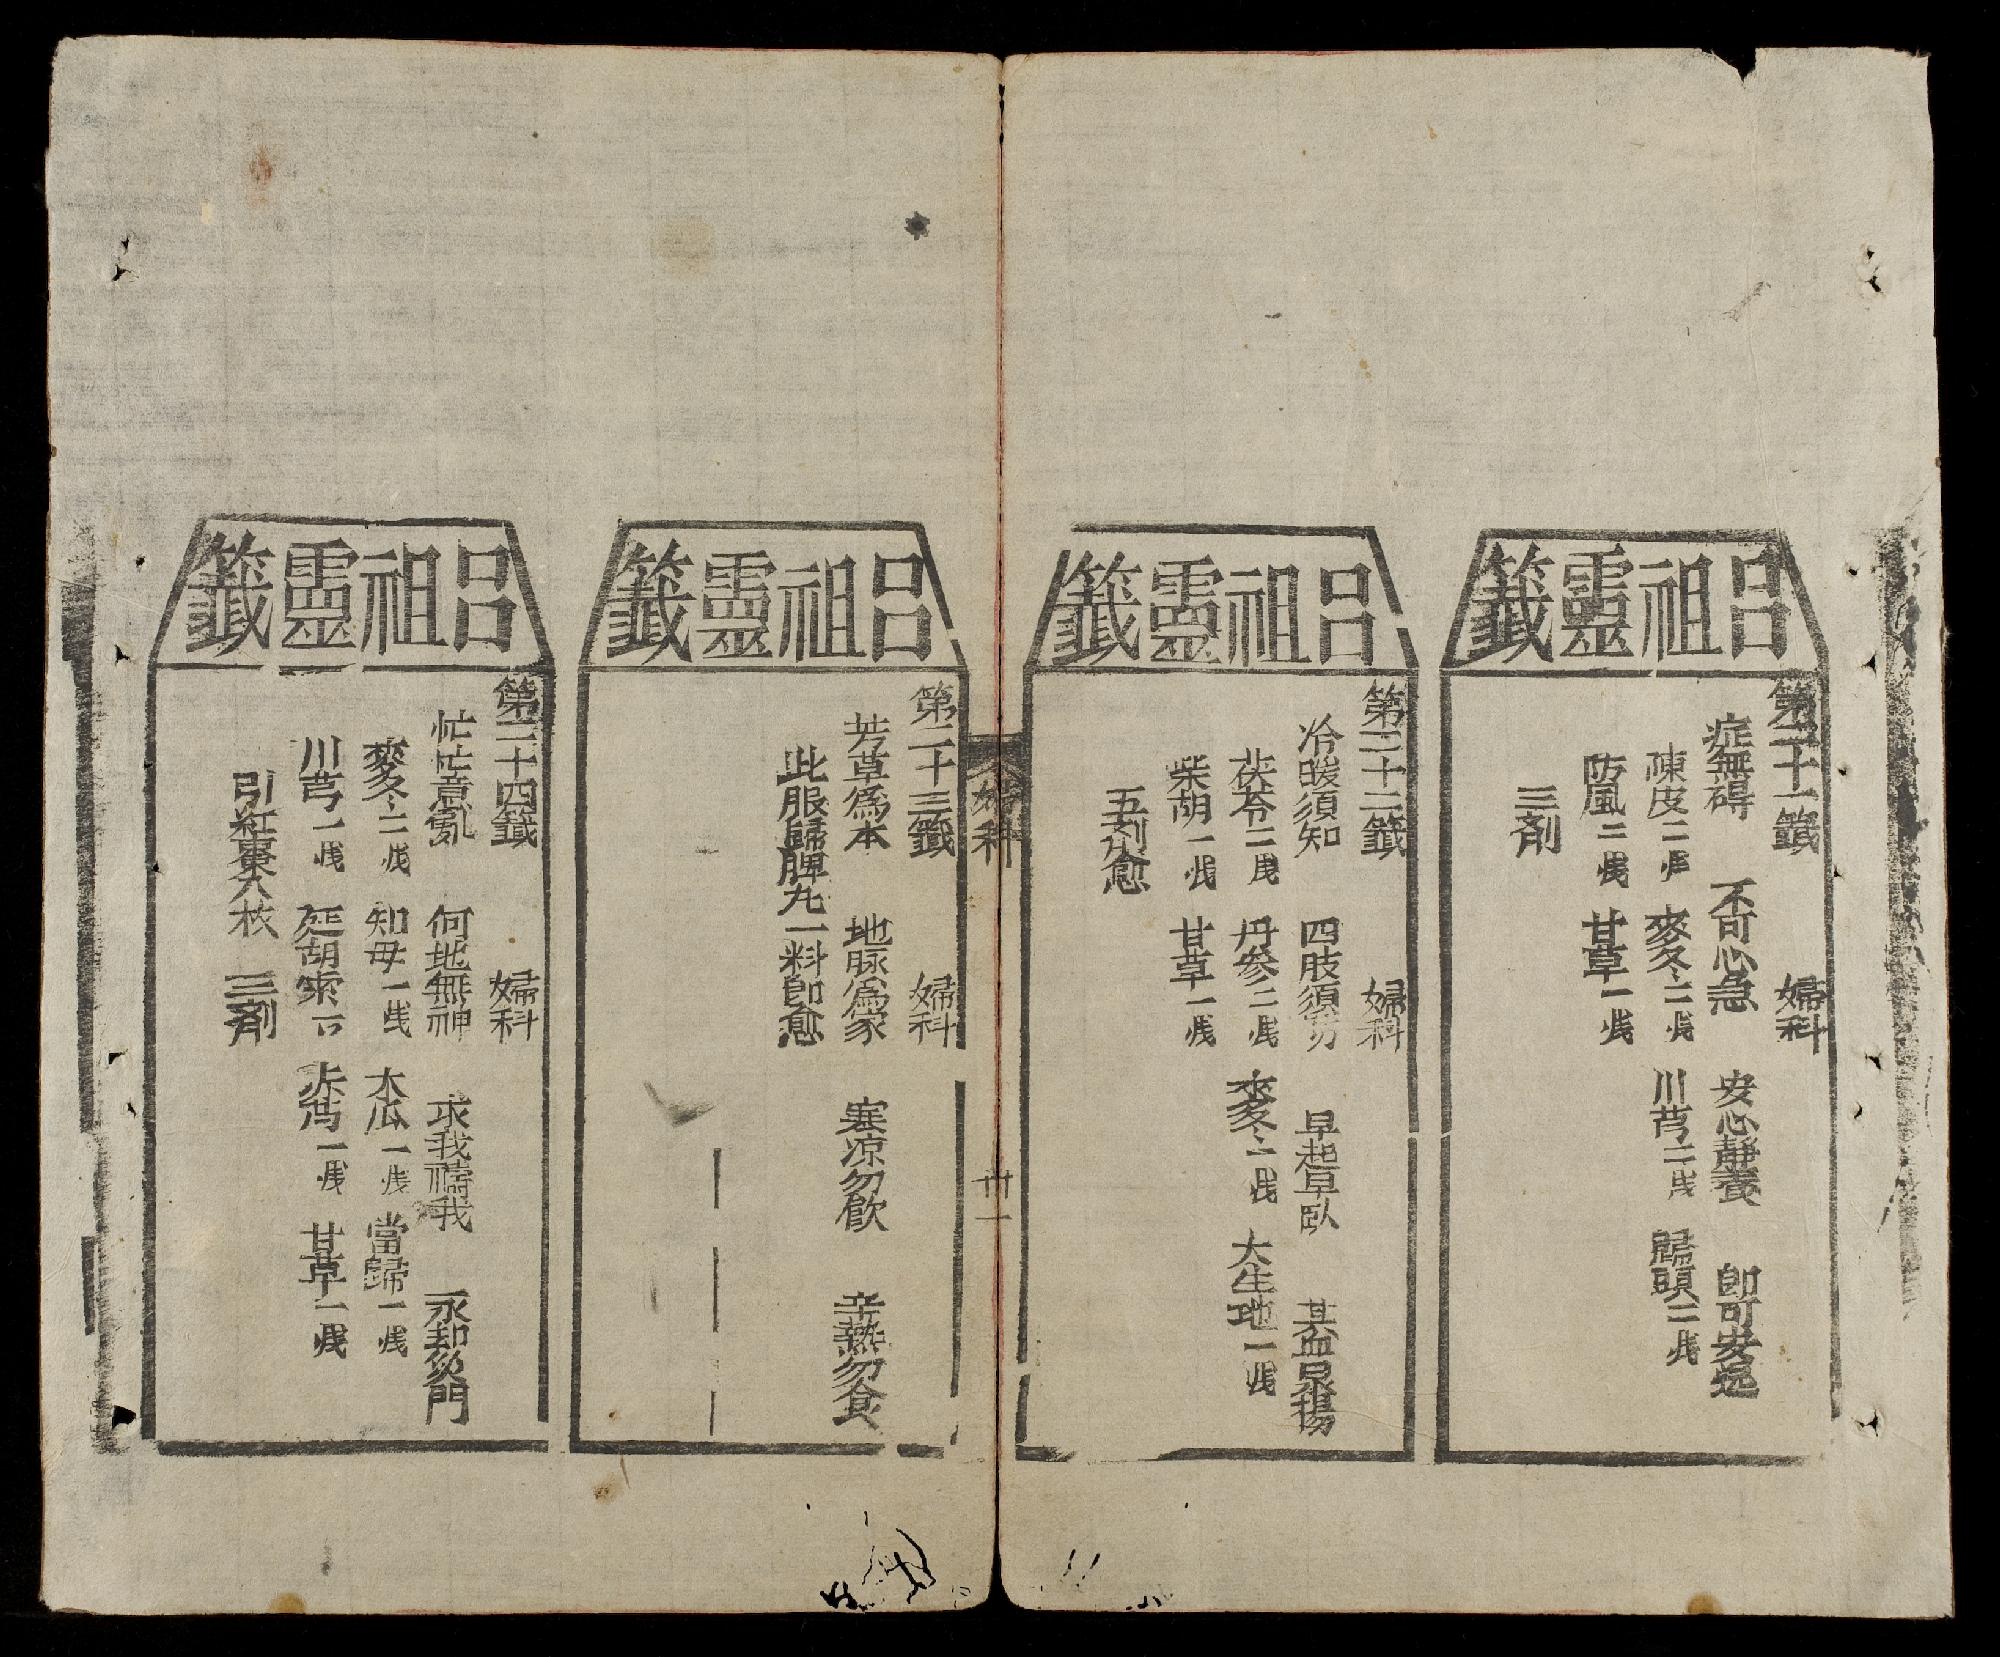 呂祖靈籤
第二十一籤 婦科
症無碍 不可心急 安心靜養 即可安逸
陳皮二戔 麥冬二戔 川芎二戔 歸頭二戔
防風二戔 甘草一戔
三劑
呂祖靈籤
第二十二籤 婦科
冷暖須知 四肢須 早起早臥 其血
茯苓二戔 丹參二戔 麥冬二戔 大生地一戔
柴胡一戔 甘草一戔
五剂愈
婦科
卅一
呂祖靈籤
第二十三籤 婦科
芳草為本 地脉為家 寒凉勿飲 辛熱勿食
此服歸脾丸一料即愈
呂祖靈籤
第二十四籤 婦科
忙忙意亂 何地無神 求我禱我 永却災門
麥冬二戔 知母一戔 木瓜一戔 當歸一戔
川芎一戔 延胡索 一戔 甘草一戔
引紅棗六枚 三剤